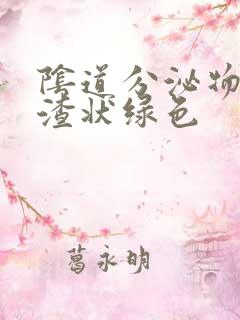 陰道分泌物
渣状绿色
葛永明